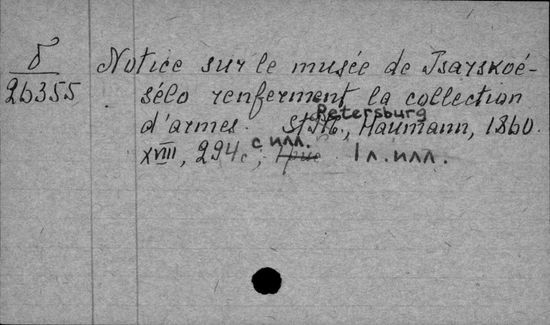 δ Notice sur le musée de Tsarskoé-
26355 sélo renferment la collection
d'armes. St Petersburg, Haumann, 1860.
XVIII, 294 с., с илл. 1 л. илл.